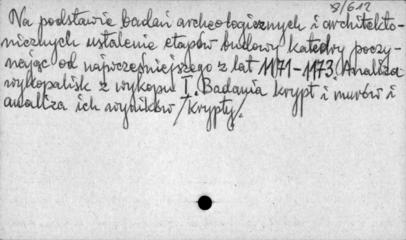 8/6.12
Na podstawie badań archeologicznych i architekto-
nicznych ustalenie etapów budowy katedry poczy-
nając od najwcześniejszego z lat 1171-1173. Analiza
wykopalisk z wykopu I. Badania krypt i murów i
analiza ich wyników /krypty/.